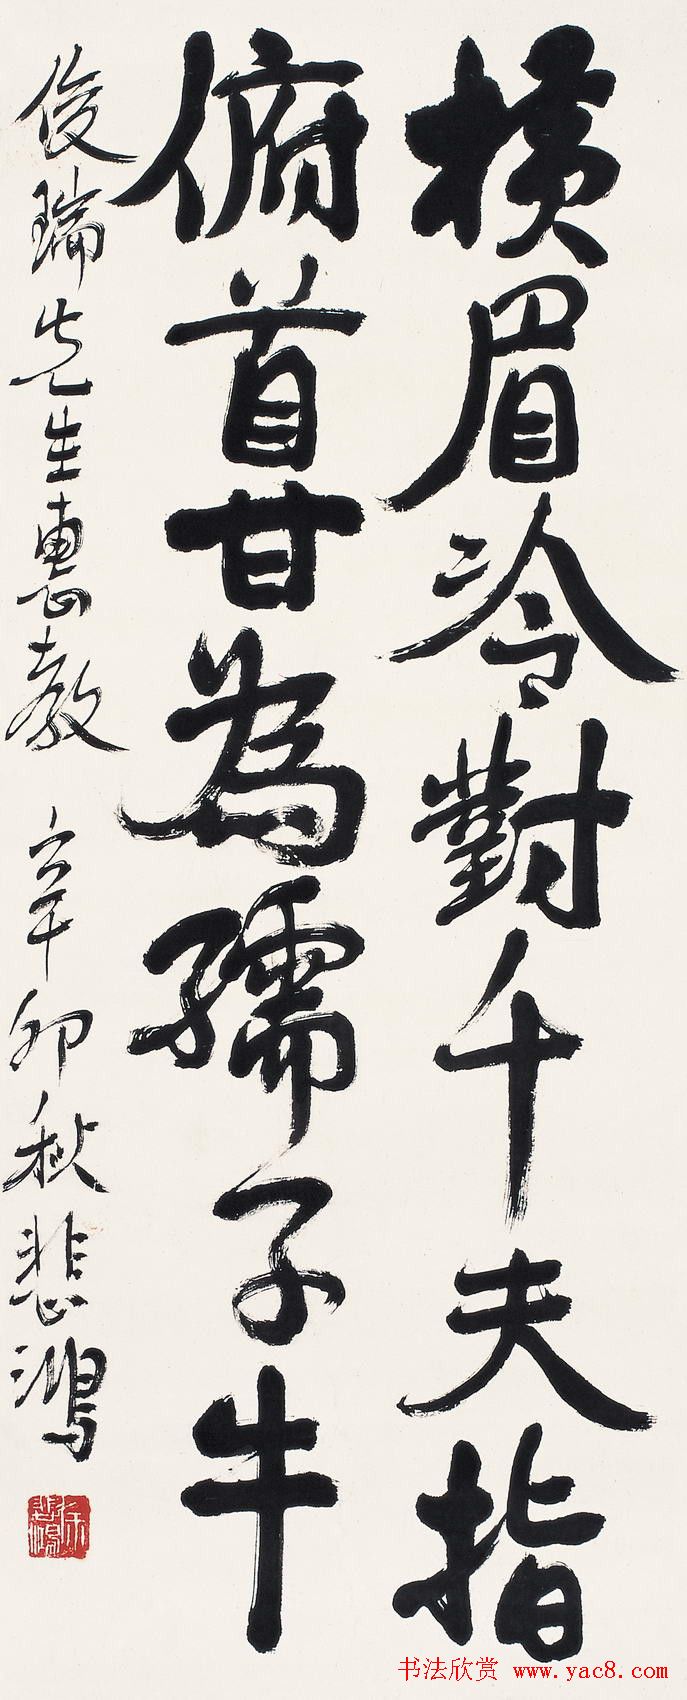 横眉冷對千夫指
俯首甘為孺子牛
俊瑞先生惠教 辛卯秋悲鴻
徐悲鴻
书法欣赏 www.yac8.com